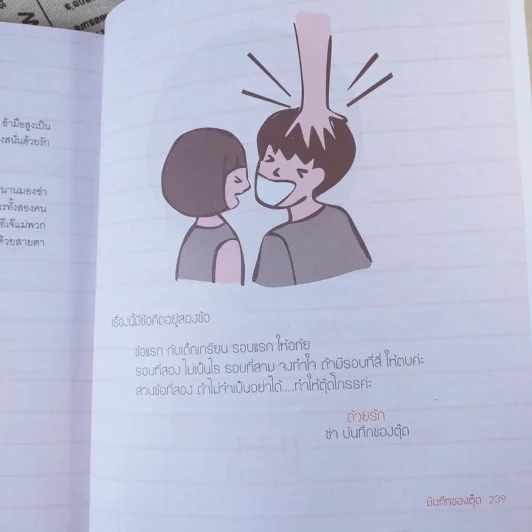 อ้ามือสูงเป็น
งสนั่นด้วยรัก
นานมองซ่า
รทั้งสองคน
อีเจ๊แม่พวก
ด้วยสายตา
เรื่องนี้มีข้อคิดอยู่สองข้อ
ข้อแรก กับเด็กเกรียน รอบแรก ให้อภัย
รอบที่สอง ไม่เป็นไร รอบที่สาม จงทำใจ ถ้ามีรอบที่สี่ ให้ตบค่ะ
ส่วนข้อที่สอง ถ้าไม่จำเป็นอย่าได้....ทำให้ตุ๊ดโกรธค่ะ
ด้วยรัก
ซ่า บันทึกของตุ๊ด
บันทึกของตุ๊ด 239